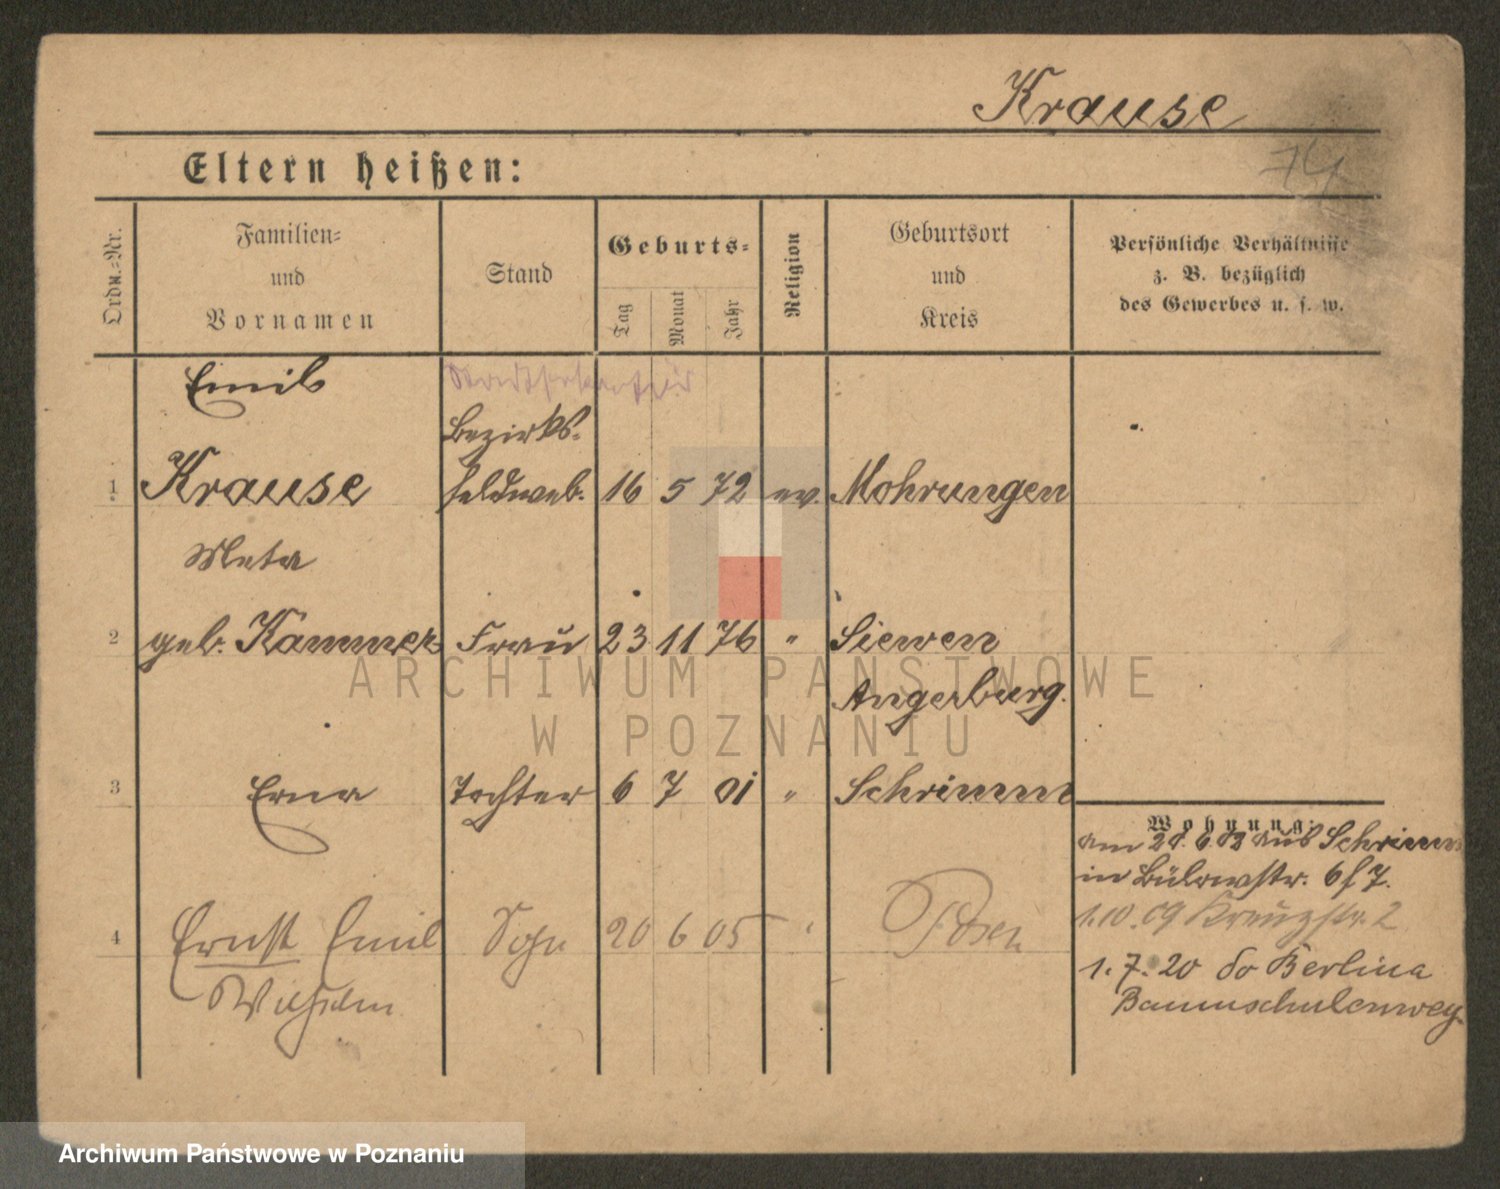 Krause
Eltern heißen:
74
Ordn.-Nr.
Familien-
und
Vornamen
Stand
Geburts-
Tag
Monat
Jahr
Religion
Geburtsort
und
Kreis
Persönliche Verhältnisse
z. B. bezüglich
des Gewerbes u. s. w.
Emil
Bezirks-
1 Krause feldweb. 16 5 72 ev. Mohrungen
Meta
2 geb. Kammer Frau 23 11 76 " Siewen
Angerburg.
3 Erna Tochter 6 7 01 " Schrimm
Wohnung:
am 28.6.02 aus Schrimm
in Bülowstr. 6 f 7.
1.10.09 Kreuzstr. 2
4 Ernst Emil Sohn 20 6 05 " Posen
Wilhelm
1.7.20 do Berlin a
Baumschulenweg.
ARCHIWUM PAŃSTWOWE
W POZNANIU
Archiwum Państwowe w Poznaniu